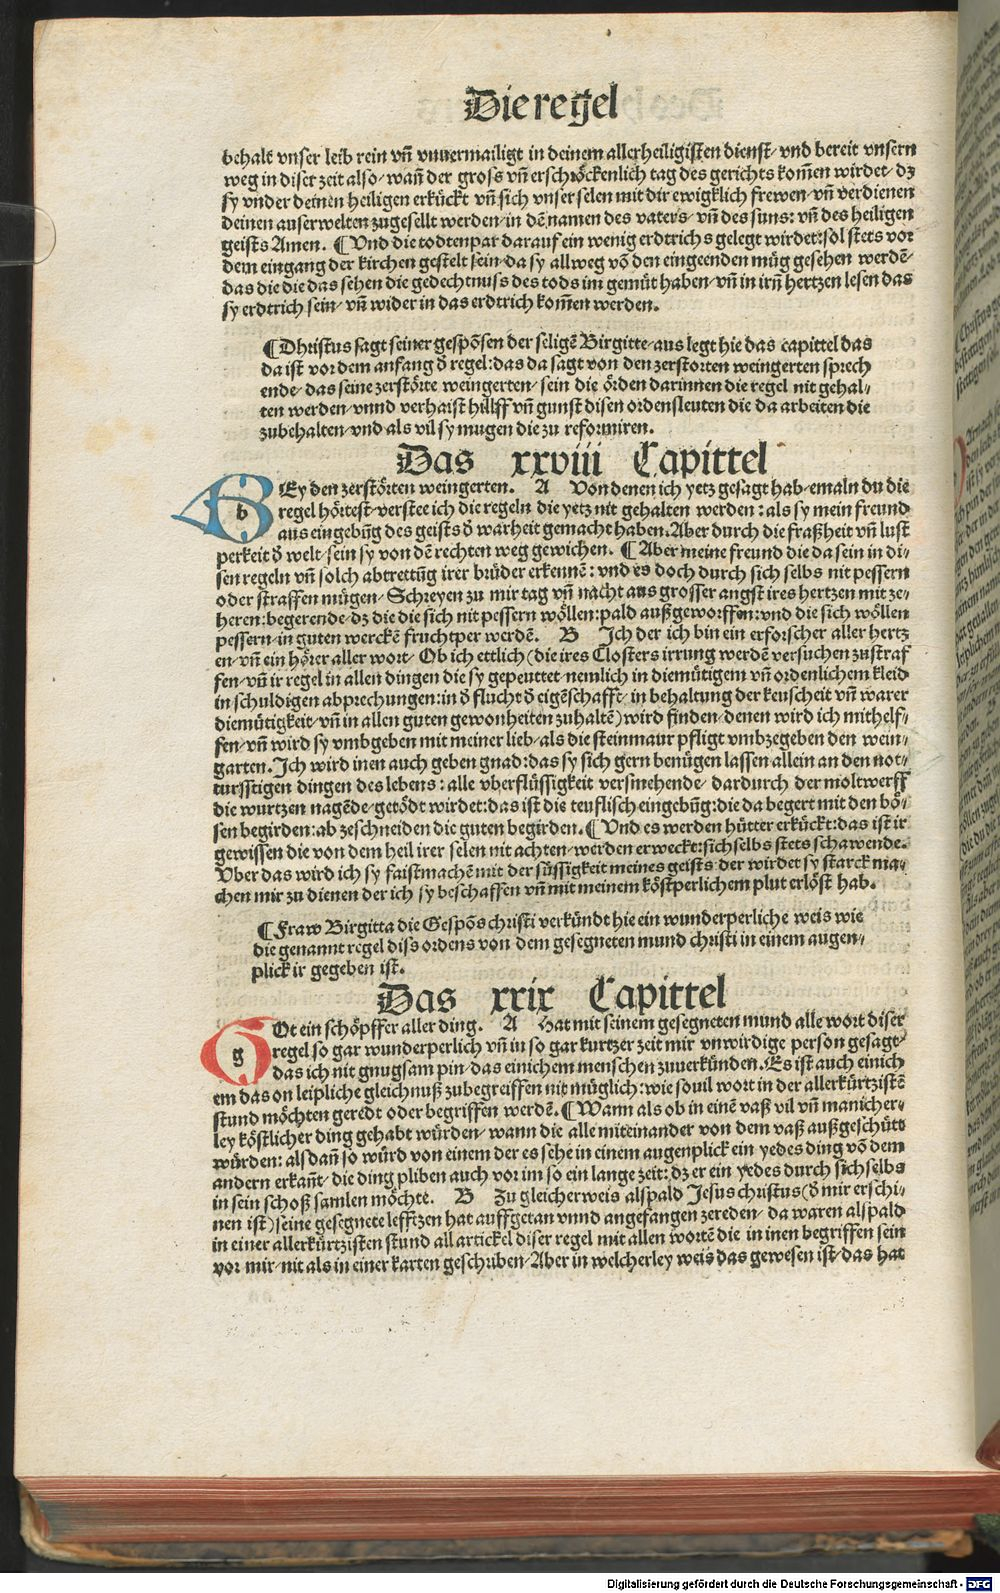 Die regel
behalt vnser leib rein vñ vnuermailigt in deinem allerheiligisten dienst/ vnd bereit vnsern
weg in diser zeit also/ wañ der gross vñ erschröckenlich tag des gerichts kom̃en wirdet/ dz
sy vnder deinen heiligen erkückt vñ sich vnser selen mit dir ewigklich frewen/ vñ verdienen
deinen auserwelten zugesellt werden/ in dē namen des vaters/ vñ des suns: vñ des heiligen
geists Amen. ¶ Vnd die todtenpar darauf ein wenig erdtrichs gelegt wirdet: sol stets vor
dem eingang der kirchen gestelt sein/ da sy allweg vō den eingeenden müg gesehen werdē/
das die die das sehen die gedechtnuss des tods im gemüt haben/ vñ in irñ hertzen lesen das
sy erdtrich sein/ vñ wider in das erdtrich kom̃en werden.
¶ Dhristus sagt seiner gespōsen der seligē Birgitte/ aus legt hie das capittel das
da ist vor dem anfang ð regel: das da sagt von den zerstorten weingerten sprech
ende/ das seine zerstörte weingerten/ sein die örden darinnen die regel nit gehal⸗
ten werden/ vnnd verhaist hillff vñ gunst disen ordensleuten die da arbeiten die
zubehalten/ vnd als vil sy mugen die zu reformiren.
Das xxviii Capittel
B b Ey den zerstörten weingerten. A Von denen ich yetz gesagt hab/ emaln du die
regel hörtest/ verstee ich die regeln die yetz nit gehalten werden: als sy mein freund
aus eingebūg des geists ð warheit gemacht haben. Aber durch die fraßheit vñ lust
perkeit ð welt/ sein sy von dē rechten weg gewichen. ¶ Aber meine freund die da sein in di⸗
sen regeln vñ solch abtrettūg irer brüder erkennē: vnd es doch durch sich selbs nit pessern
oder straffen mügen/ Schreyen zu mir tag vñ nacht aus grosser angst ires hertzen mit ze⸗
heren: begerende/ dz die die sich nit pessern wöllen: pald außgeworffen: vnd die sich wöllen
pessern/ in guten werckē fruchtper werdē. B Ich der ich bin ein erforscher aller hertz
en/ vñ ein hörer aller wort/ Ob ich ettlich (die ires Closters irrung werdē versuchen zustraf
fen/ vñ ir regel in allen dingen die sy gepeuttet/ nemlich in diemütigem vñ ordenlichem kleid
in schuldigen abprechungen: in ð flucht ð eigēschafft/ in behaltung der keuscheit vñ warer
diemütigkeit/ vñ in allen guten gewonheiten zuhaltē) wird finden/ denen wird ich mithelf⸗
fen/ vñ wird sy vmbgeben mit meiner lieb/ als die steinmaur pfligt vmbzegeben den wein⸗
garten. Ich wird inen auch geben gnad: das sy sich gern benügen lassen allein an den not⸗
turfftigen dingen des lebens: alle vberflüssigkeit versmehende/ dardurch der moltwerff
die wurtzen nagēde/ getödt wirdet: das ist die teuflisch eingebūg: die da begert mit den bö⸗
sen begirden: ab zeschneiden die guten begirden. ¶ Vnd es werden hütter erkückt: das ist ir
gewissen die von dem heil irer selen nit achten/ werden erweckt: sich selbs stets schawende.
Vber das wird ich sy faist machen mit der süssigkeit meines geists der wirdet sy starck ma⸗
chen mir zu dienen der ich sy beschaffen vñ mit meinem köstperlichem plut erlöst hab.
¶ Fraw Birgitta die Gespōs christi verkündt hie ein wunderperliche weis wie
die genannt regel diss ordens von dem gesegneten mund christi in einem augen⸗
plick ir gegeben ist.
Das xxix Capittel
G g Ot ein schöpffer aller ding. A hat mit seinem gesegneten mund alle wort diser
regel so gar wunderperlich vñ in so gar kurtzer zeit mir vnwirdige person gesagt/
das ich nit gnugsam pin/ das einichem menschen zuuerkünden. Es ist auch einich
em das on leipliche gleichnuß zubegreiffen nit müglich: wie souil wort in der allerkürtzistē
stund möchten geredt oder begriffen werdē. ¶ Wann als ob in einē vaß vil vñ manicher⸗
ley köstlicher ding gehabt würden/ wann die alle miteinander von dem vaß außgeschütt
würden: als dañ so würd von einem der es sehe in einem augenplick ein yedes ding vō dem
andern erkañt/ die ding pliben auch vor im so ein lange zeit: dz er ein yedes durch sich selbs
in sein schoß samlen möchte. B Zu gleicher weis alspald Jesus christus (ð mir erschi⸗
nen ist) seine gesegnete lefftzen hat auffgetan vnnd angefangen zereden/ da waren alspald
in einer allerkürtzisten stund all artickel diser regel mit allen wortē die in inen begriffen sein
vor mir/ nit als in einer karten geschriben/ Aber in welcherley weis das gewesen ist/ das hat
Digitalisierung gefördert durch die Deutsche Forschungsgemeinschaft - DFG